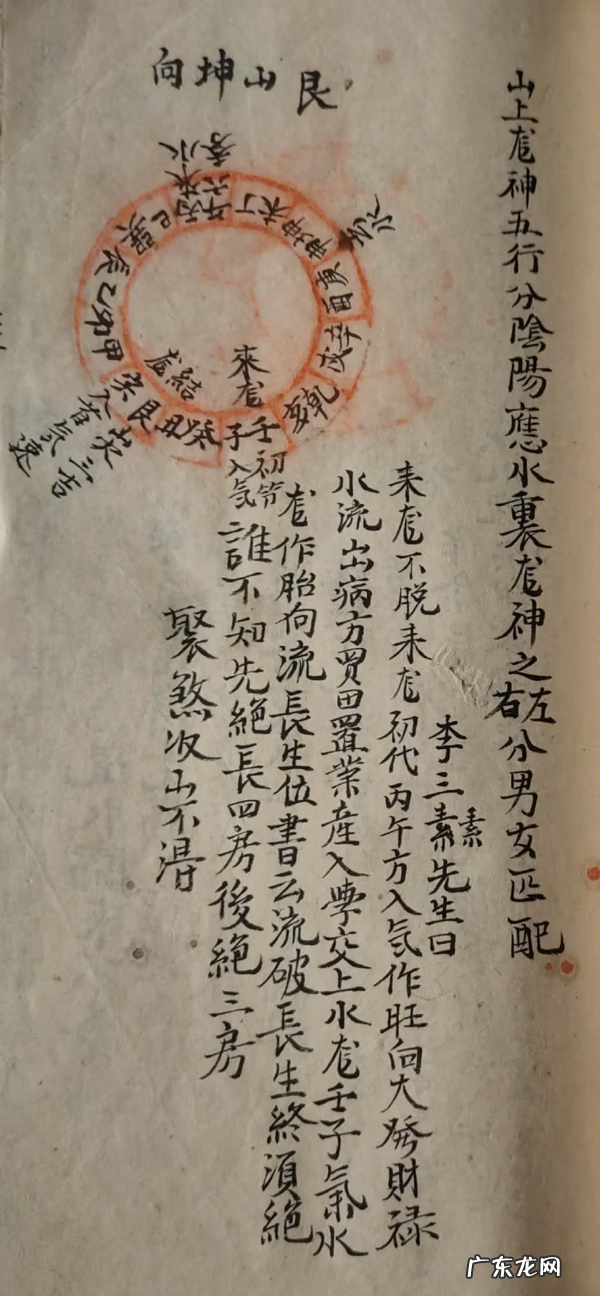 山上龙神五行分陰陽應水裏龙神之左右分男女匹配
李三素素先生曰
来龙不脱来龙初代丙午方入气作旺向大發財禄
水流出病方買田置業産入學交上水龙壬子氣水
龙作胎向流長生位書云流破長生終須絕
誰不知先絕長四房後絕三房
聚煞收山不得
艮山坤向
來龙
結
壬子
初節
入气
癸丑艮寅
甲卯乙辰
巽巳丙午丁未坤申
庚酉辛戌
乾亥
六
來
水
广东龙网